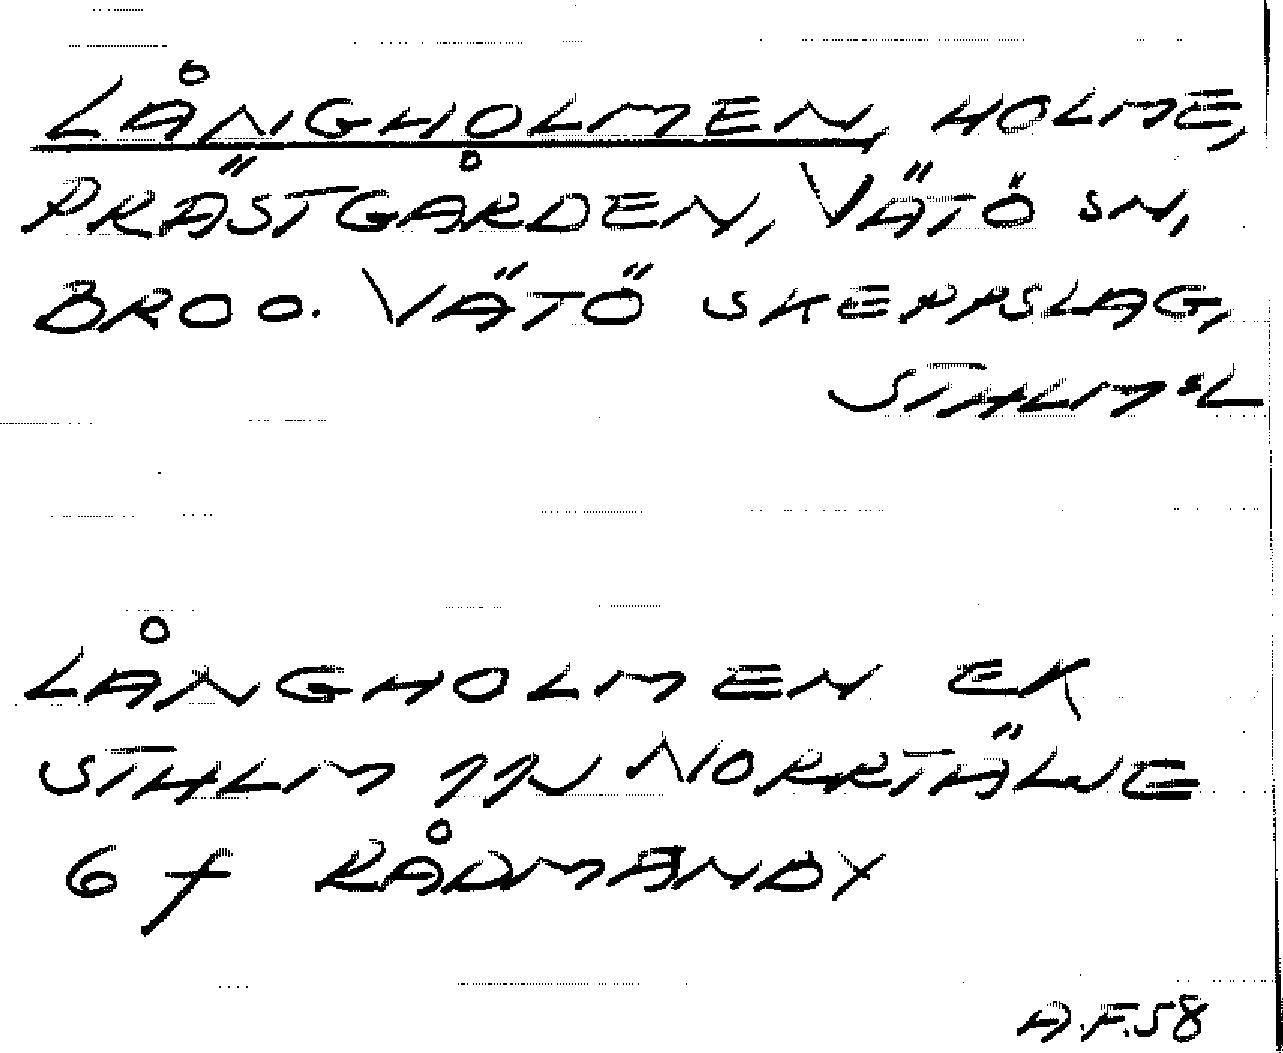 LÅNGHOLMEN, HOLME,
PRÄSTGÅRDEN, VÄTÖ SN,
BRO O. VÄTÖ SKEPPSLAG,
STHLM:L
LÅNGHOLMEN EK
STHLM 11N NORRTÄLJE
6 f RÅDMANBY
A.F.58